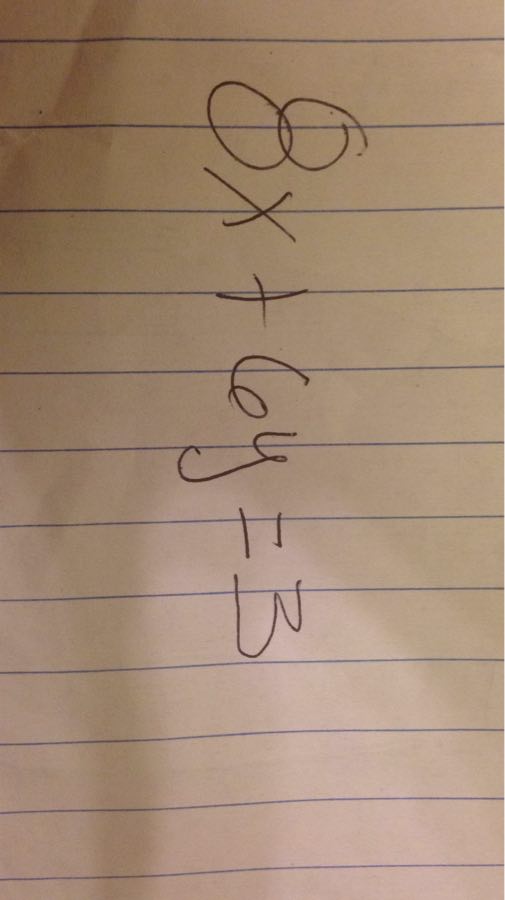 8x + 6y = 3